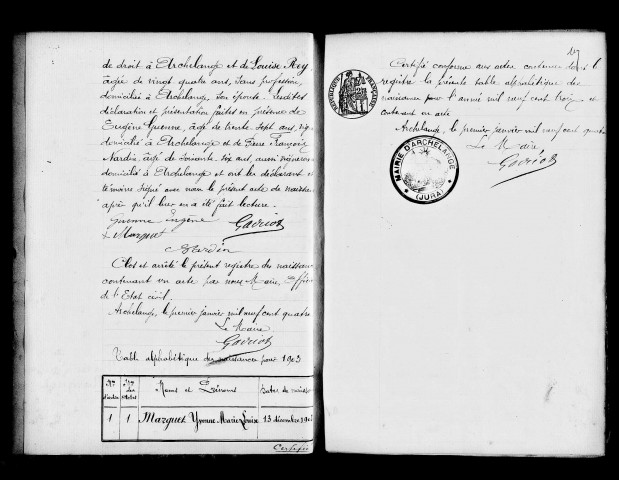 de droit à Archelange et de Louise Rey
âgée de vingt quatre ans, sans profession,
domiciliée à Archelange, son épouse. Lesdites
déclaration et présentation faites en présence de
Eugène Guenne, âgé de trente sept ans,
domicilié à Archelange et de Pierre François
Nardin, âgé de soixante six ans, aussi vigneron
domicilié à Archelange et ont les déclarant et
témoins signé avec nous le présent acte de naissan
après qu'il leur en a été fait lecture.
Guenne Eugène Gavriot
Marguet
Nardin
Clos et arrêté le présent registre des naissan
contenant un acte par nous Maire, Offici
de l'Etat civil.
Archelange, le premier janvier mil neuf cent quatre
Le Maire
Gavriot
Table alphabétique des naissances pour 1903
Nos d'ordre Nos des actes Noms et Prénoms Dates de naissan
1 1 Marguet Yvonne Marie Louise 13 décembre 190
Certifié
Certifié conforme aux actes contenus dans l
registre la présente table alphabétique des
naissances pour l'année mil neuf cent trois et
contenant un acte
Archelange, le premier janvier mil neuf cent quatre
Le Maire
Gavriot
RÉPUBLIQUE FRANÇAISE
MAIRIE D'ARCHELANGE
(JURA)